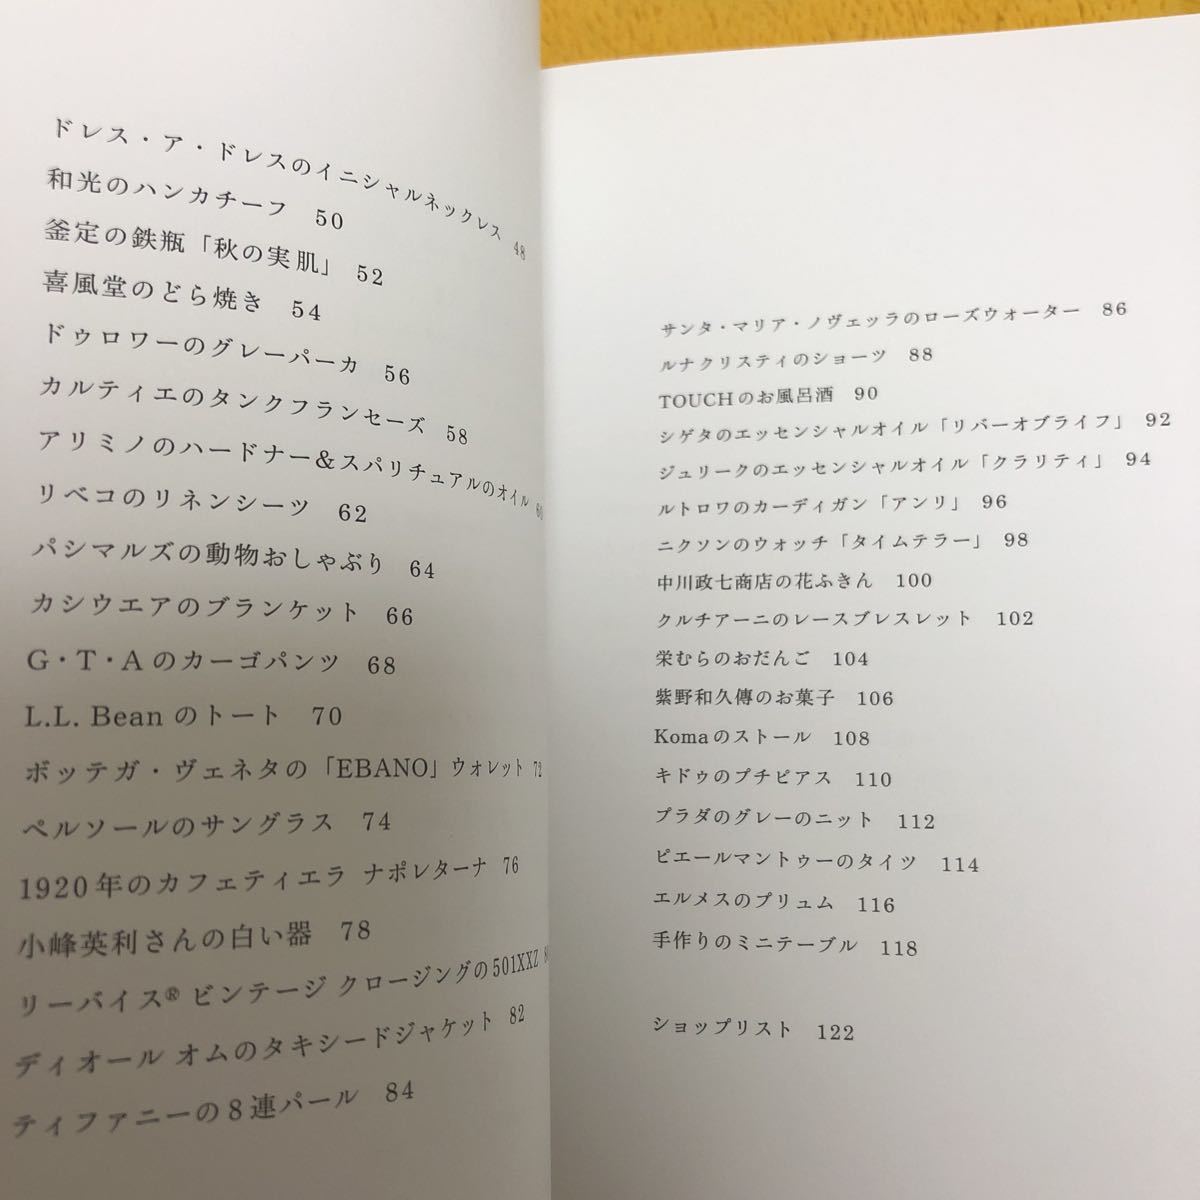 ドレス・ア・ドレスのイニシャルネックレス 48
和光のハンカチーフ 50
釜定の鉄瓶「秋の実肌」 52
喜風堂のどら焼き 54
ドゥロワーのグレーパーカ 56
カルティエのタンクフランセーズ 58
アリミノのハードナー&スパリチュアルのオイル 60
リベコのリネンシーツ 62
パシマルズの動物おしゃぶり 64
カシウエアのブランケット 66
G・T・Aのカーゴパンツ 68
L.L. Beanのトート 70
ボッテガ・ヴェネタの「EBANO」ウォレット 72
ペルソールのサングラス 74
1920年のカフェティエラ ナポレターナ 76
小峰英利さんの白い器 78
リーバイス® ビンテージ クロージングの501XXZ
ディオール オムのタキシードジャケット 82
ティファニーの8連パール 84
サンタ・マリア・ノヴェッラのローズウォーター 86
ルナクリスティのショーツ 88
TOUCHのお風呂酒 90
シゲタのエッセンシャルオイル「リバーオブライフ」 92
ジュリークのエッセンシャルオイル「クラリティ」 94
ルトロワのカーディガン「アンリ」 96
ニクソンのウォッチ「タイムテラー」 98
中川政七商店の花ふきん 100
クルチアーニのレースブレスレット 102
栄むらのおだんご 104
紫野和久傳のお菓子 106
Komaのストール 108
キドゥのプチピアス 110
プラダのグレーのニット 112
ピエールマントゥーのタイツ 114
エルメスのプリュム 116
手作りのミニテーブル 118
ショップリスト 122